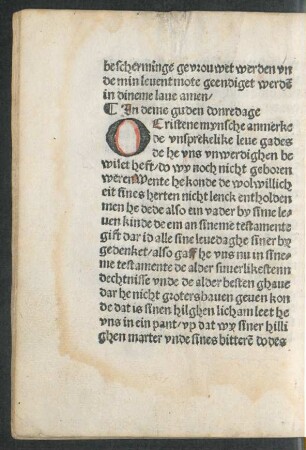 bescherminge gevrouwet werden vn
de min leuent mote geendiget werdē
in dineme laue amen/
¶ In deme guden donredage
O Cristene mynsche anmerke
de vnsprekelike leue gades
de he vns vnwerdighen be
wilet heft/do wy noch nicht geboren
weren Wente he konde de wolwillich
eit sines herten nicht lenck entholden
men he dede also ein vader by sime le
uen kinde de em an sineme testamente
gift dar id alle sine leuedaghe siner by
gedenket/also gaff he vns nu in sine
me testamente de alder suuerlikestenn
dechtnisse vnde de alder besten ghaue
dar he nicht groters bauen geuen kon
de dat is sinen hilghen licham leet he
vns in ein pant/vp dat wy siner hilli
ghen marter vnde sines bitterē dodes